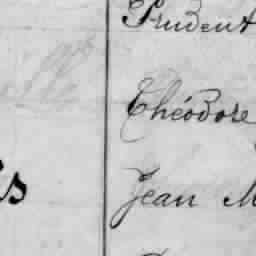 Prudent
Théodore
Jean M